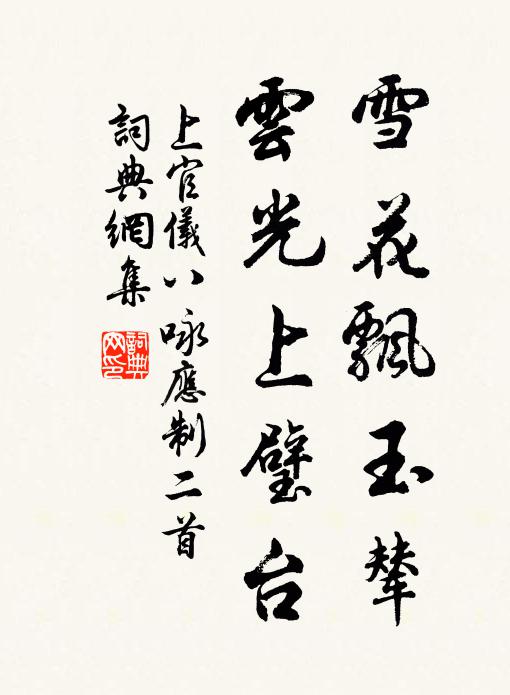 雪花飄玉輦
雲光上璧台
上官儀八咏應制二首
詞典網集
詞典網印